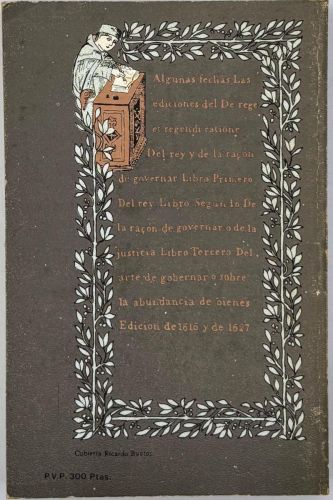 Algunas fechas Las
ediciones del De rege
et regendi ratione
Del rey y de la raçon
de governar Libro Primero
Del rey Libro Segundo De
la raçon de governar o de la
justicia Libro Tercero Del
arte de gobernar o sobre
la abundancia de bienes
Edicion de 1616 y de 1627
Cubierta Ricardo Bustos
P.V.P. 300 Ptas.